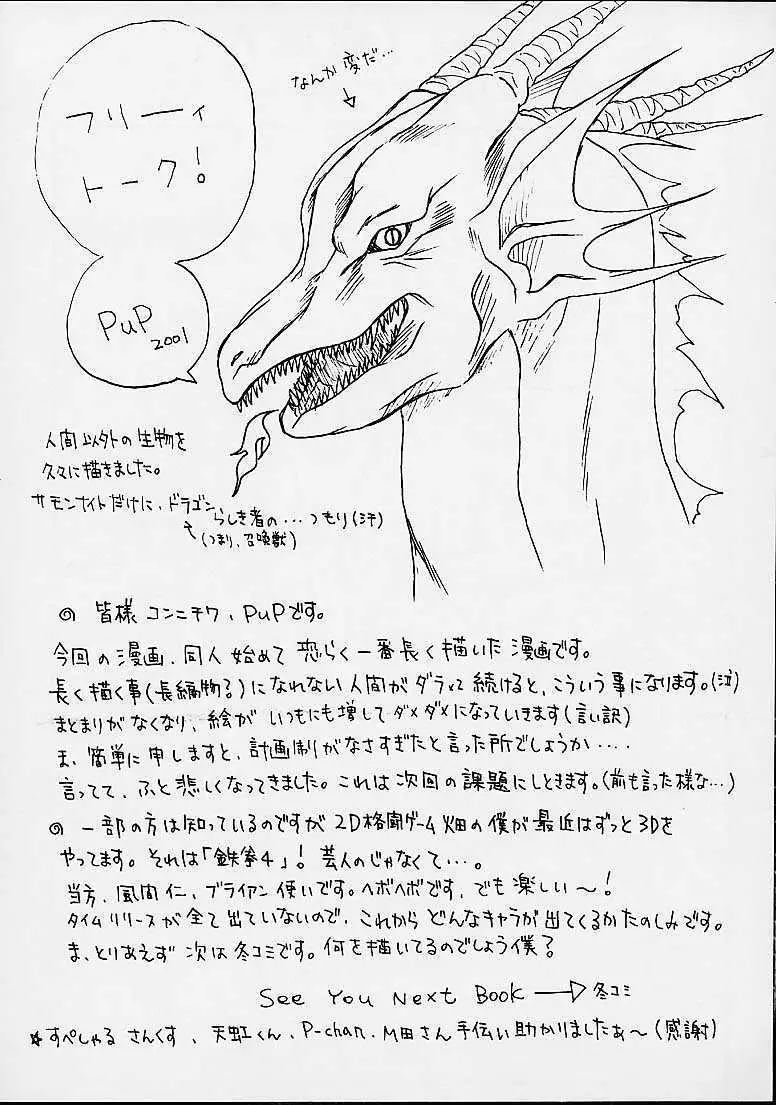 フリーィ
トーク!
PuP
2001
なんか変だ…
人間以外の生物を
久々に描きました。
サモンナイトだけに、ドラゴン
らしき者の…つもり(汗)
(つまり、召喚獣)
◎ 皆様コンニチワ、PuPです。
今回の漫画、同人始めて恐らく一番長く描いた漫画です。
長く描く事(長編物?)になれない人間がダラッと続けると、こういう事になります。(泣)
まとまりがなくなり、絵がいつもにも増してダメダメになっていきます(言い訳)
ま、簡単に申しますと、計画制がなさすぎたと言った所でしょうか・・・・
言ってて、ふと悲しくなってきました。これは次回の課題にしときます。(前も言った様な…)
◎ 一部の方は知っているのですが2D格闘ゲーム畑の僕が最近はずっと3Dを
やってます。それは「鉄拳4」!芸人のじゃなくて…。
当方、風間仁、ブライアン使いです。ヘボヘボです、でも楽しい〜!
タイムリリースが全て出ていないので、これからどんなキャラが出てくるかたのしみです。
ま、とりあえず次は冬コミです。何を描いてるのでしょう僕?
See You Next Book → 冬コミ
☆すぺしゃるさんくす、天虹くん、P-chan、M田さん手伝い助かりましたぁ〜(感謝)